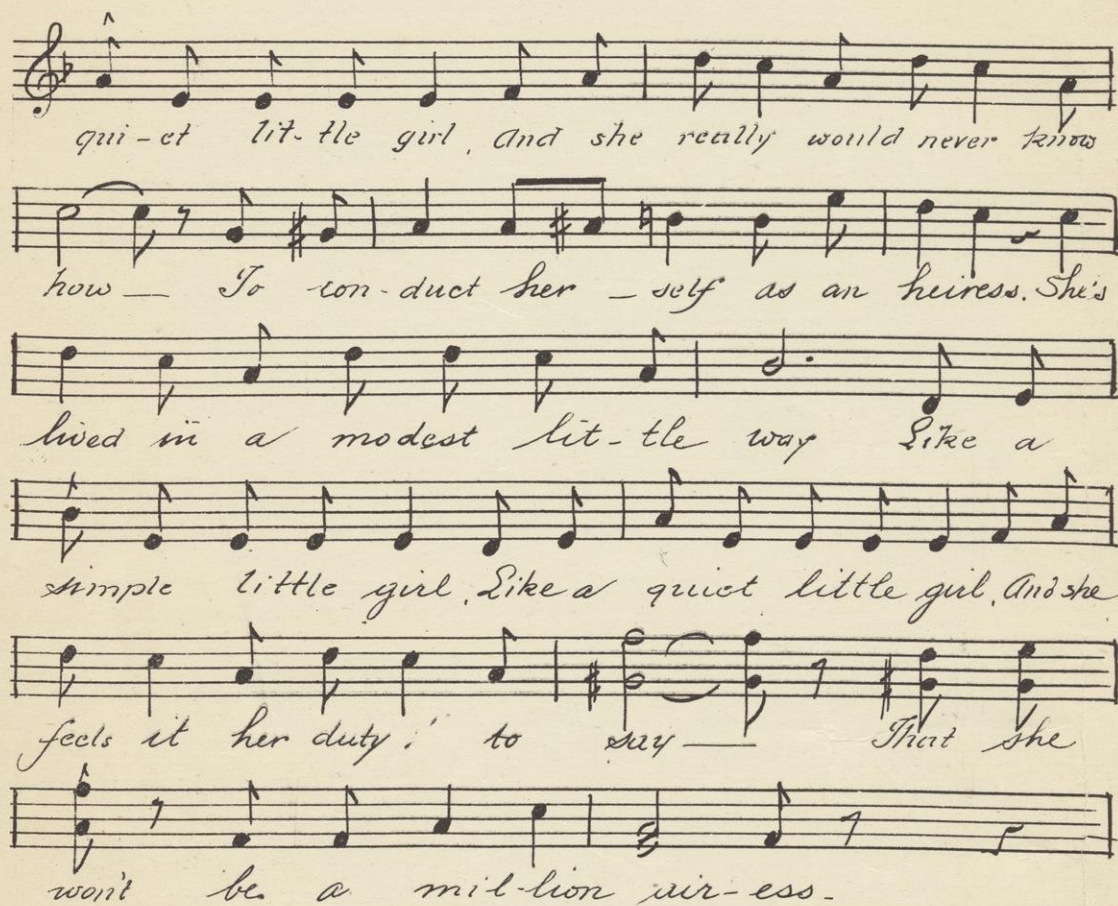 qui-et lit-tle girl, And she really would never know
how — To con-duct her - self as an heiress. She's
lived in a modest lit-tle way Like a
simple little girl, Like a quiet little girl, And she
feels it her duty! to say — That she
won't be a mil-lion air-ess.